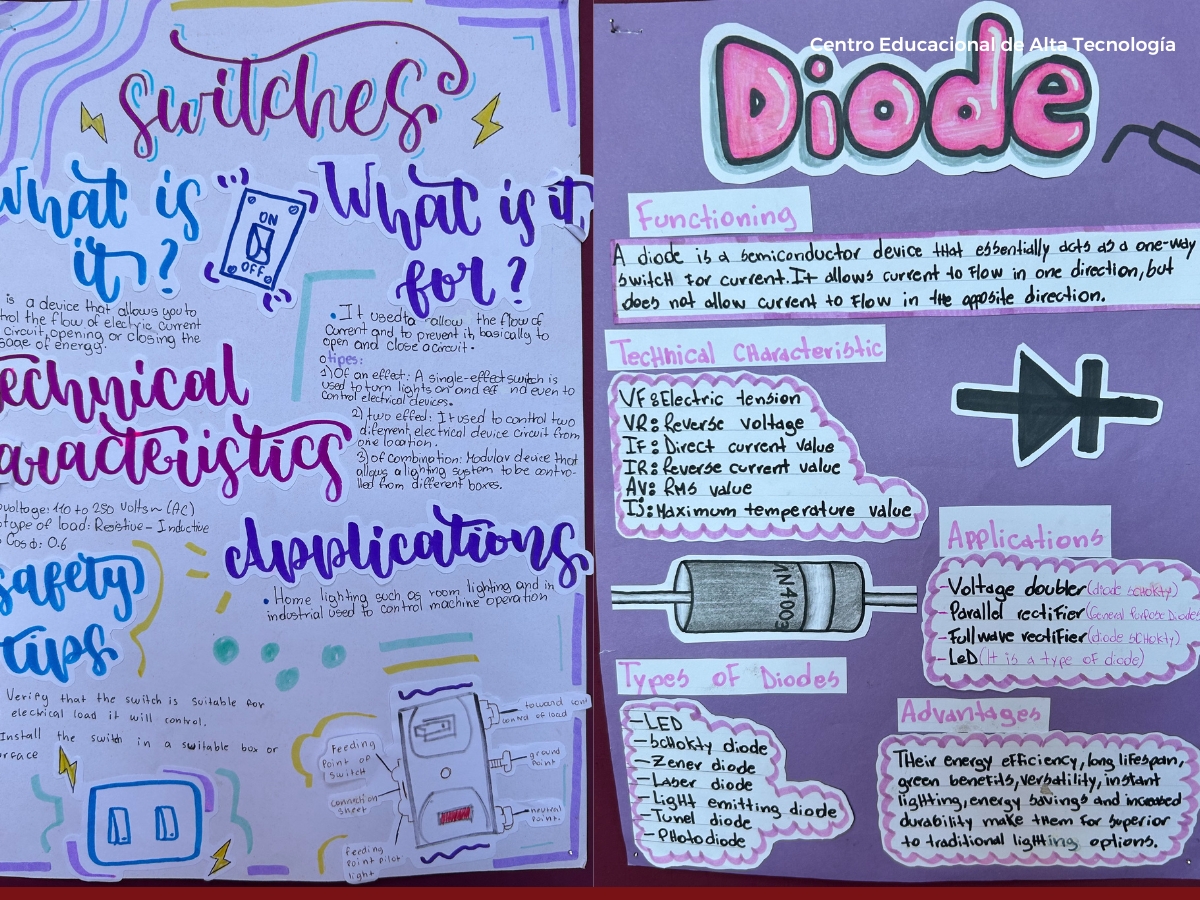 Centro Educacional de Alta Tecnología
switches
What is
it?
ON
OFF
is a device that allows you to
the flow of electric current
circuit, opening or closing the
of energy.
What is it
for?
• It used to allow the flow of
current and to prevent it, basically to
open and close a circuit.
tipes:
1) Of an effect: A single-effect switch is
used to turn lights on and off nd even to
control electrical devices.
2) two effect: It used to control two
diferent electrical device circuit from
one location.
3) of combination: Modular device that
allows a lighting system to be contro-
lled from different boxes.
voltage: 110 to 250 Volts~ (AC)
type of load: Resistive - Inductive
Cos ϕ: 0.6
Applications
• Home lighting such as room lighting and in
industrial used to control machine operation
safety
tips
Verify that the switch is suitable for
electrical load it will control.
Install the switch in a suitable box or
toward
control of load
Feeding
Point of
switch
ground
point
connection
sheet
neutral
Point.
Feeding
Point pilot
light
Diode
Functioning
A diode is a semiconductor device that essentially acts as a one-way
switch for current. It allows current to flow in one direction, but
does not allow current to flow in the opposite direction.
Technical Characteristic
VF: Electric tension
VR: Reverse voltage
IF: Direct current value
IR: Reverse current value
AV: RMS value
Tj: Maximum temperature value
1N4003
Applications
-Voltage doubler (diode schokty)
-Parallel rectifier (General Purpose Diodes
-Full wave rectifier (diode schokty)
-LeD (It is a type of diode)
Types of Diodes
-LED
-schokty diode
-Zener diode
-Laser diode
-Light emitting diode
-Tunel diode
-Photodiode
Advantages
Their energy efficiency, long lifespan,
green benefits, versatility, instant
lighting, energy savings and increased
durability make them for superior
to traditional lighting options.